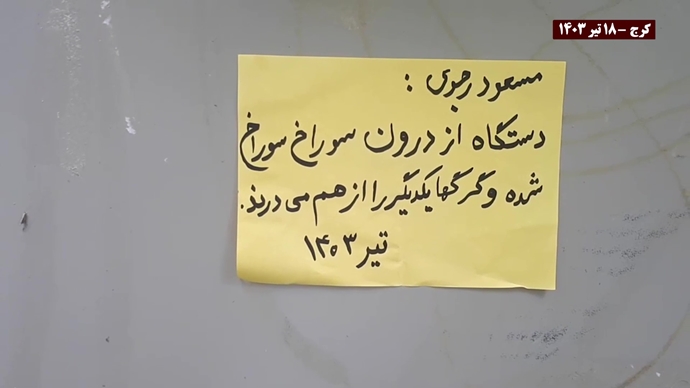 کرج - ۱۸ تیر ۱۴۰۳
مسعود رجوی :
دستگاه از درون سوراخ سوراخ
شده و گرگها یکدیگر را از هم می درند.
تیر ۱۴۰۳